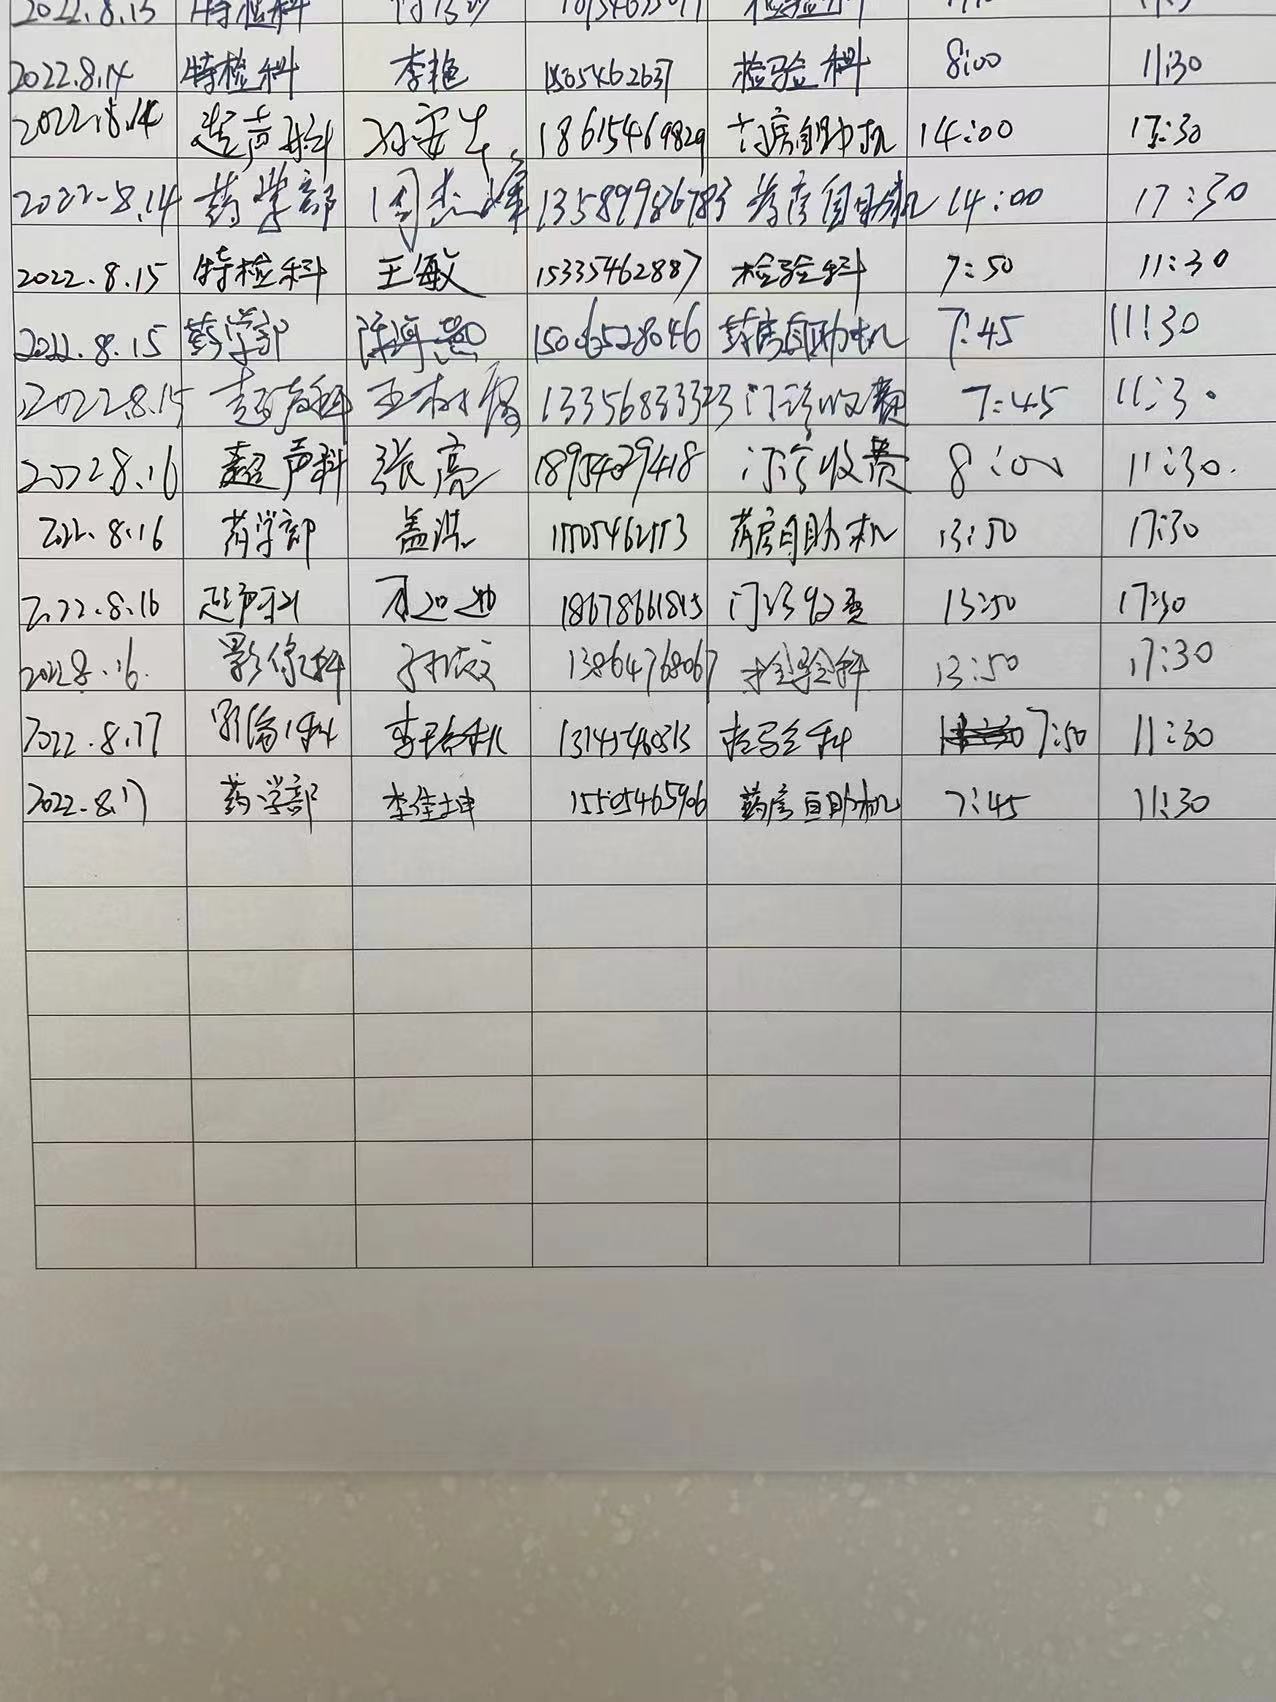 2022.8.14 特检科 李艳 1505462637 检验科 8:00 11:30
2022.8.14 超声科 18615469829 14:00 17:30
2022.8.14 药学部 周杰峰 13589986783 药房自助机 14:00 17:30
2022.8.15 特检科 王敏 15335462887 检验科 7:50 11:30
2022.8.15 药学部 陈海燕 15006528046 药房自助机 7:45 11:30
2022.8.15 超声科 13356833323 门诊收费 7:45 11:30
2022.8.16 超声科 张亮 18954029418 门诊收费 8:00 11:30.
2022.8.16 药学部 盖洪 药房自助机 13:50 17:30
2022.8.16 超声科 18678661815 门诊收费 13:50 17:30
2022.8.16. 影像科 孙文 13864768067 检验科 13:50 17:30
2022.8.17 影像科 检验科 7:50 11:30
2022.8.17 药学部 李佳坤 15505465906 药房自助机 7:45 11:30